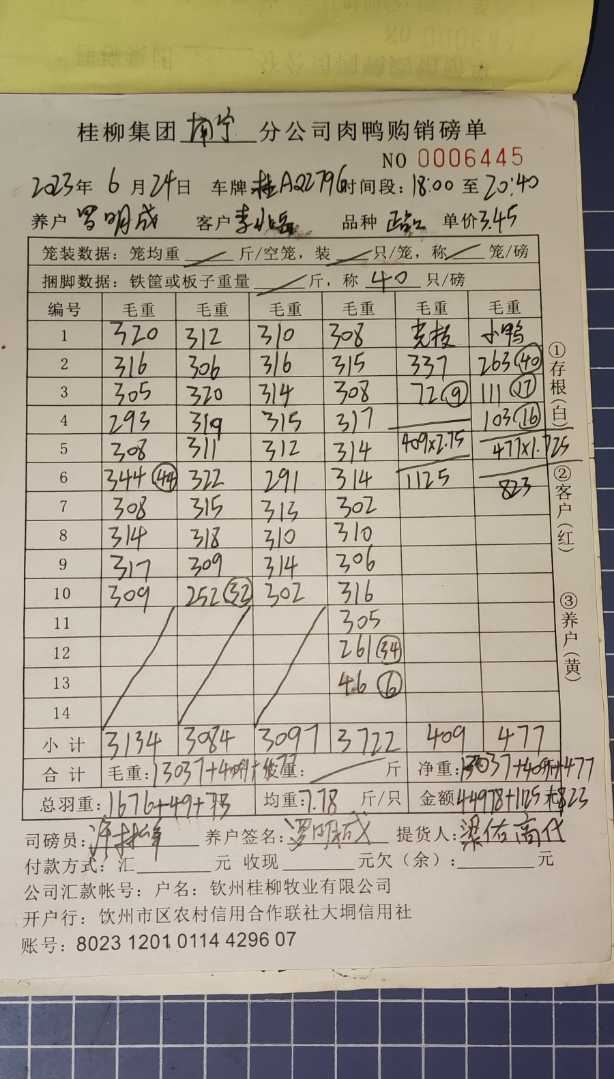 桂柳集团 南宁 分公司肉鸭购销磅单
NO 0006445
2023年 6 月 24日 车牌:桂A02796 时间段:18:00 至 20:40
养户 罗明成 客户 品种 单价3.45
笼装数据:笼均重 斤/空笼,装 只/笼,称 笼/磅
捆脚数据:铁筐或板子重量 斤,称 40 只/磅
编号 毛重 毛重 毛重 毛重 毛重 毛重
1 320 312 310 308 小鸭
2 316 306 316 315 337 263 40
3 305 320 314 308 72 9 111 17
4 293 319 315 317 103 16
5 308 311 312 314 409×2.75 477×1.725
6 344 44 322 291 314 1125 823
7 308 315 313 302
8 314 318 310 310
9 317 309 314 306
10 309 252 32 302 316
11 305
12 261 34
13 46 6
14
小计 3134 3084 3097 3722 409 477
合计 毛重:13037+409+477 斤 净重:13037+409+477
总羽重:1676+49+73 均重:7.78 斤/只 金额:44978+1125+823
司磅员: 养户签名:罗明成 提货人:梁佑高代
付款方式:汇 元 收现 元欠(余): 元
公司汇款帐号:户名:钦州桂柳牧业有限公司
开户行:饮州市区农村信用合作联社大垌信用社
账号:8023 1201 0114 4296 07
①存根(白)
②客户(红)
③养户(黄)